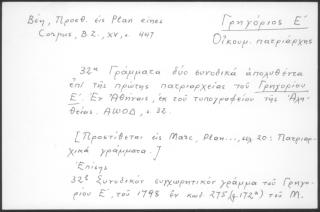 Βέη, Προσθ. εἰς Plan eines
Corpus, B.Z., XV, σ. 447
Γρηγόριος Ε΄
Οἰκουμ. πατριάρχης
32α Γράμματα δύο συνοδικὰ ἀπολυθέντα
ἐπὶ τῆς πρώτης πατριαρχείας τοῦ Γρηγορίου
Ε΄. Ἐν Ἀθήναις, ἐκ τοῦ τυπογραφείου τῆς Ἀλη-
θείας. ΑΩΟΔ, σ. 32.
[Προστίθεται εἰς Marc, Plan..., σελ. 20: Πατριαρ-
χικὰ γράμματα.]
Ἐπίσης
32β Συνοδικὸν συγχωρητικὸν γράμμα τοῦ Γρηγο-
ρίου Ε΄, τοῦ 1798 ἐν κωδ. 275 (φ. 172α) τοῦ Μ.